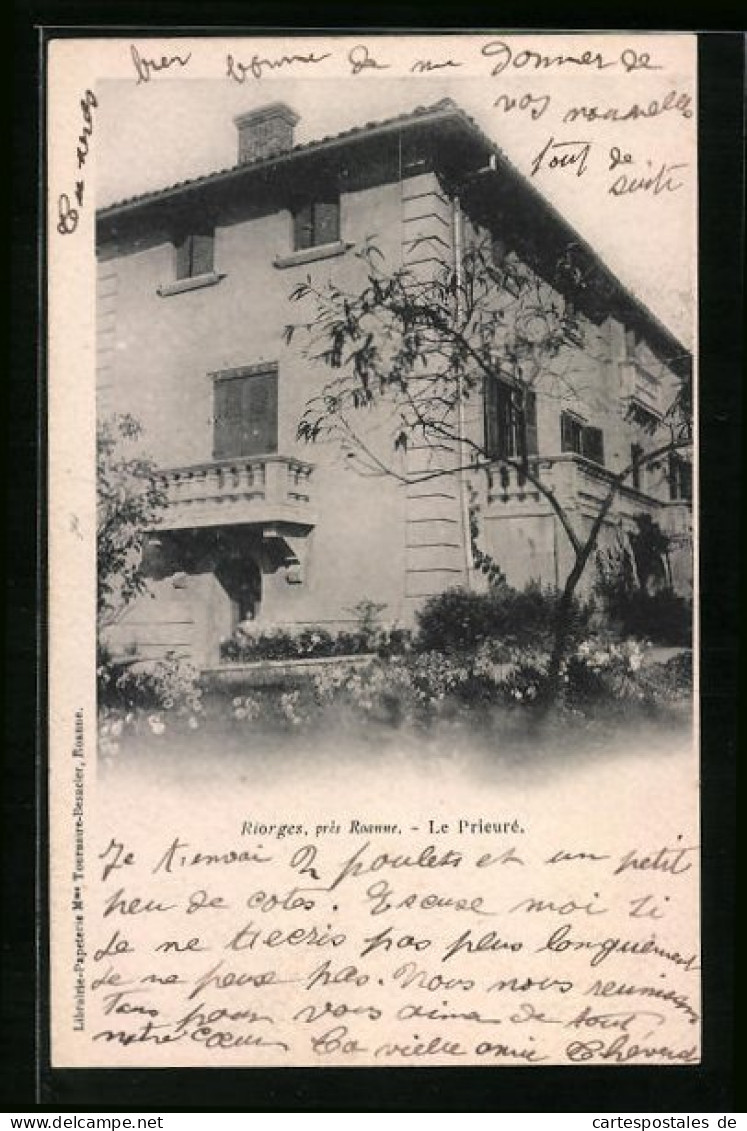 Tu serds
bien bonne de me donner de
vos nouvelle
tout de
suite
Librairie-Papeterie Mme Tournaire-Besacier, Roanne.
Riorges, près Roanne. - Le Prieuré.
Je t'envoi 2 poulets et un petit
peu de cotes. Escuse moi si
Je ne t'ecris pas plus longuement
Je ne peux pas. Nous nous reunissons
tous pour vous aimer de tout
notre Cœur La vieille amie
cartespostales de